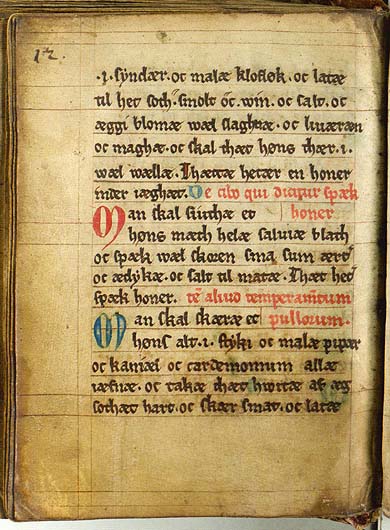 12.
·i· syndær· oc malæ kloflok· oc latæ
til het soth· smolt oc· win· oc salt· oc
æggi blomæ wæl slaghnæ· oc liuæræn
oc maghæ· oc skal thæt høns thær· i·
wæl wællæ. Thættæ hetær en honer
inder iæghæt. De cibo qui dicitur spæk
Man skal siuthæ et honer
høns mæth helæ saluiæ blath
oc spæk wæl skoren sma sum ærtær
oc ædykæ· oc salt til matæ. Thæt hetær
spæk honer. Item aliud temperamentum
Man skal skæræ et pullorum·
høns alt· i· styki oc malæ pipær
oc kaniæl oc cardemomum allæ
iæfnæ· oc takæ thæt hwitæ af æg
sothæt hart· oc skær smat· oc latæ